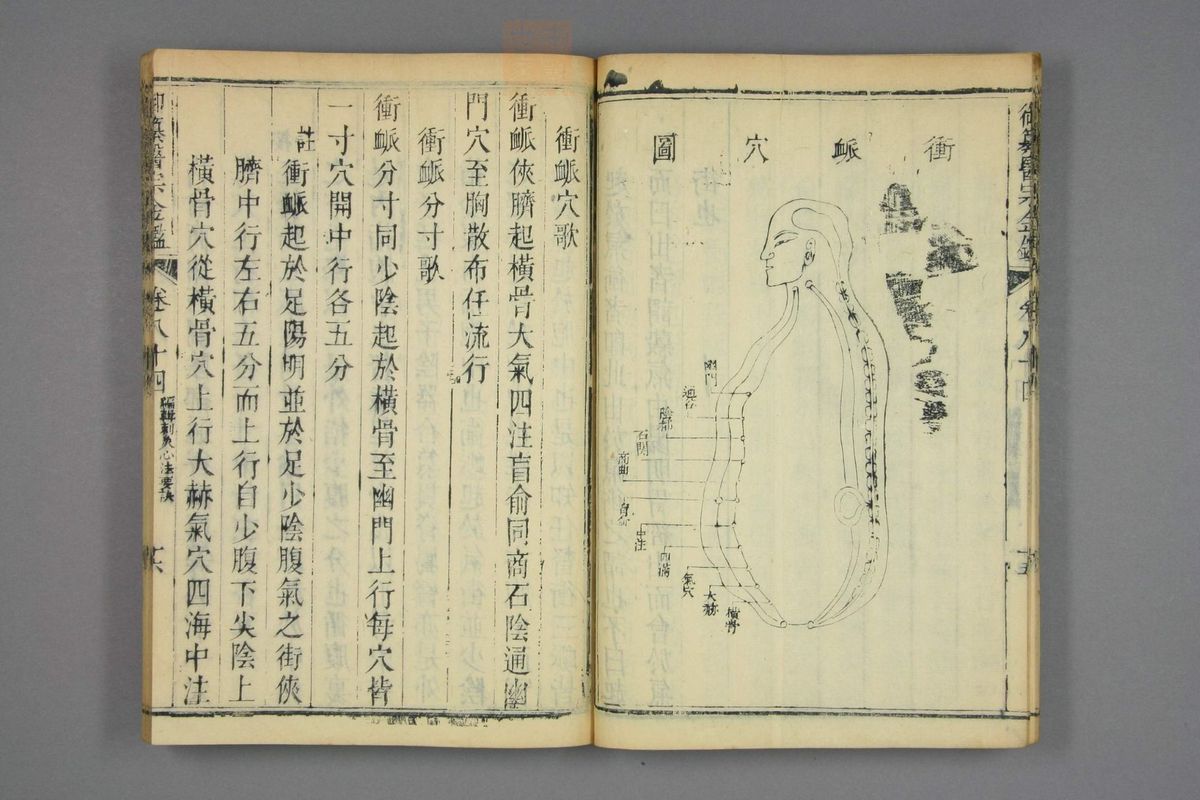 御纂醫宗金鑑 卷八十四 十五
衝衇穴圖
幽門
通谷
陰都
石關
商曲
肓俞
中注
四滿
氣穴
大赫
橫骨
衝衇穴歌
衝衇俠臍起橫骨大氣四注盲俞同商石陰通幽
門穴至胸散布任流行
衝衇分寸歌
衝衇分寸同少陰起於橫骨至幽門上行每穴皆
一寸穴開中行各五分
註衝衇起於足陽明並於足少陰腹氣之街俠
臍中行左右五分而上行自少腹下尖陰上
橫骨穴從橫骨穴上行大赫氣穴四海中注
御纂醫宗金鑑 卷八十四 編輯刺灸心法要訣 十六